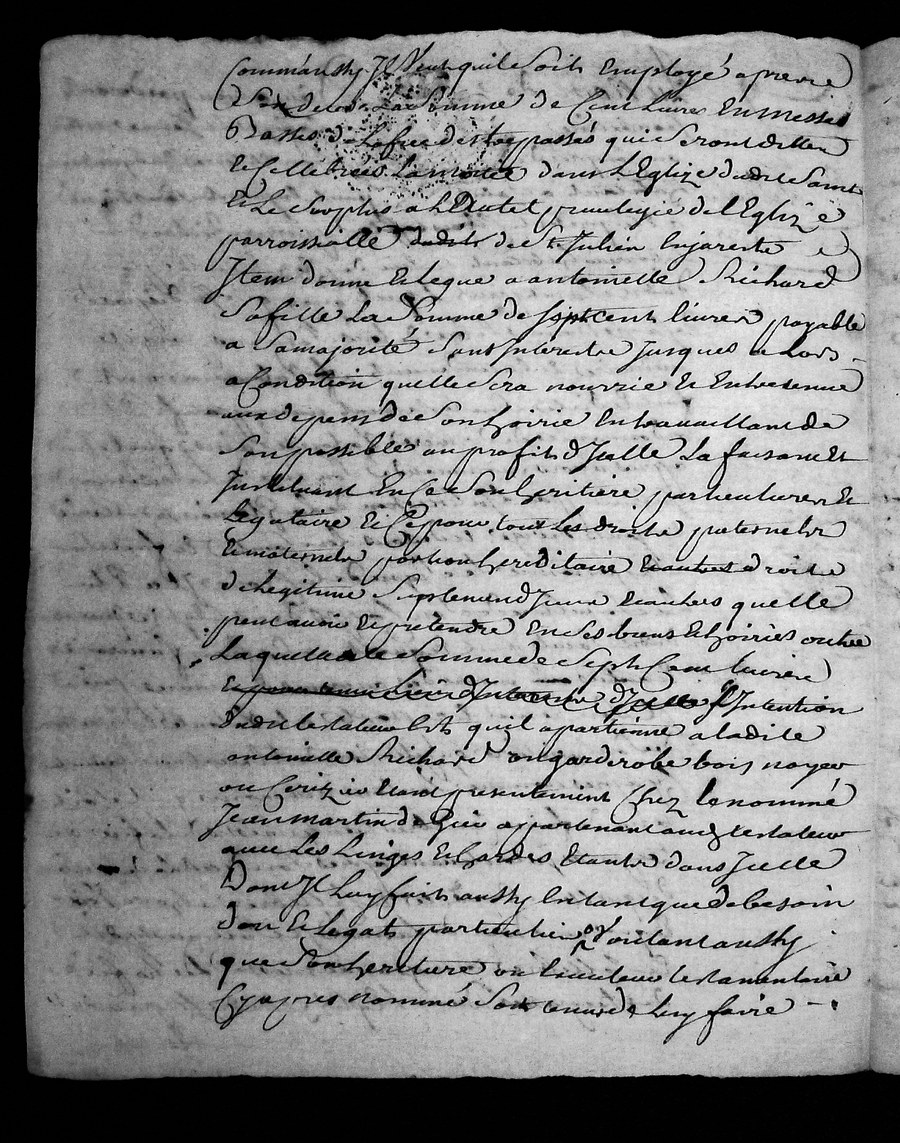 Comme aussy Jl Veut quil Soit Employé apres
Son deces La Somme de Cent livres En messes
Basses de Loffice des trepassés qui Seront dittes
Et Cellebrées La moitié dans LEglize dudit Saint
Et Le Surplus a LAutel privilegié de lEglize
parroissialle dudit de St Julien Enjareste
Jtem donne Et legue a antoinette Richard
Sa fille La Somme de Sept Cent livres payable
a Sa majorité Sans Jnterestz Jusques a Lors
a Condition quelle Sera nourrie Et Entretenue
aux depens de Son hoirie En travaillant de
Son possible au profit dJcelle La faisant Et
Jnstituant En Ce Son heritiere particuliere Et
Legataire Et Ce pour tous Les droits paternels
Et maternels portion hereditaire Et autres droits
de Legitime Suplement dJceux Et autres quelle
peut avoir Et pretendre En Ses biens Et hoiries outre
Laquelle Somme de Sept Cent livres
LJntention
dudit testateur Est quil apartienne a ladite
antoinette Richard un garderobe bois noyer
ou Cerizier Etant presentement Chez le nommé
Jean martin de Gier appartenant audit testateur
avec Les Linges Et hardes Etants dans Jcelle
Dont Jl Luy fait aussy En tant que de besoin
don Et Legat particulier et outant aussy
que Son heritiere ou Executeur testamentaire
Cy apres nommé Soit tenu de Luy faire